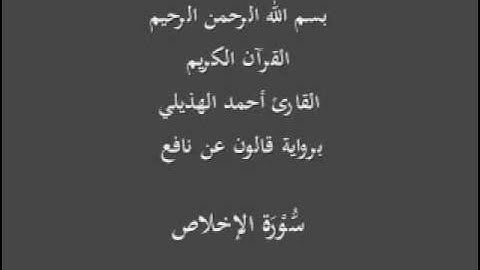 بسم الله الرحمن الرحيم
القرآن الكريم
القارئ أحمد الهذيلي
برواية قالون عن نافع
سُّوْرَة الإخلاص